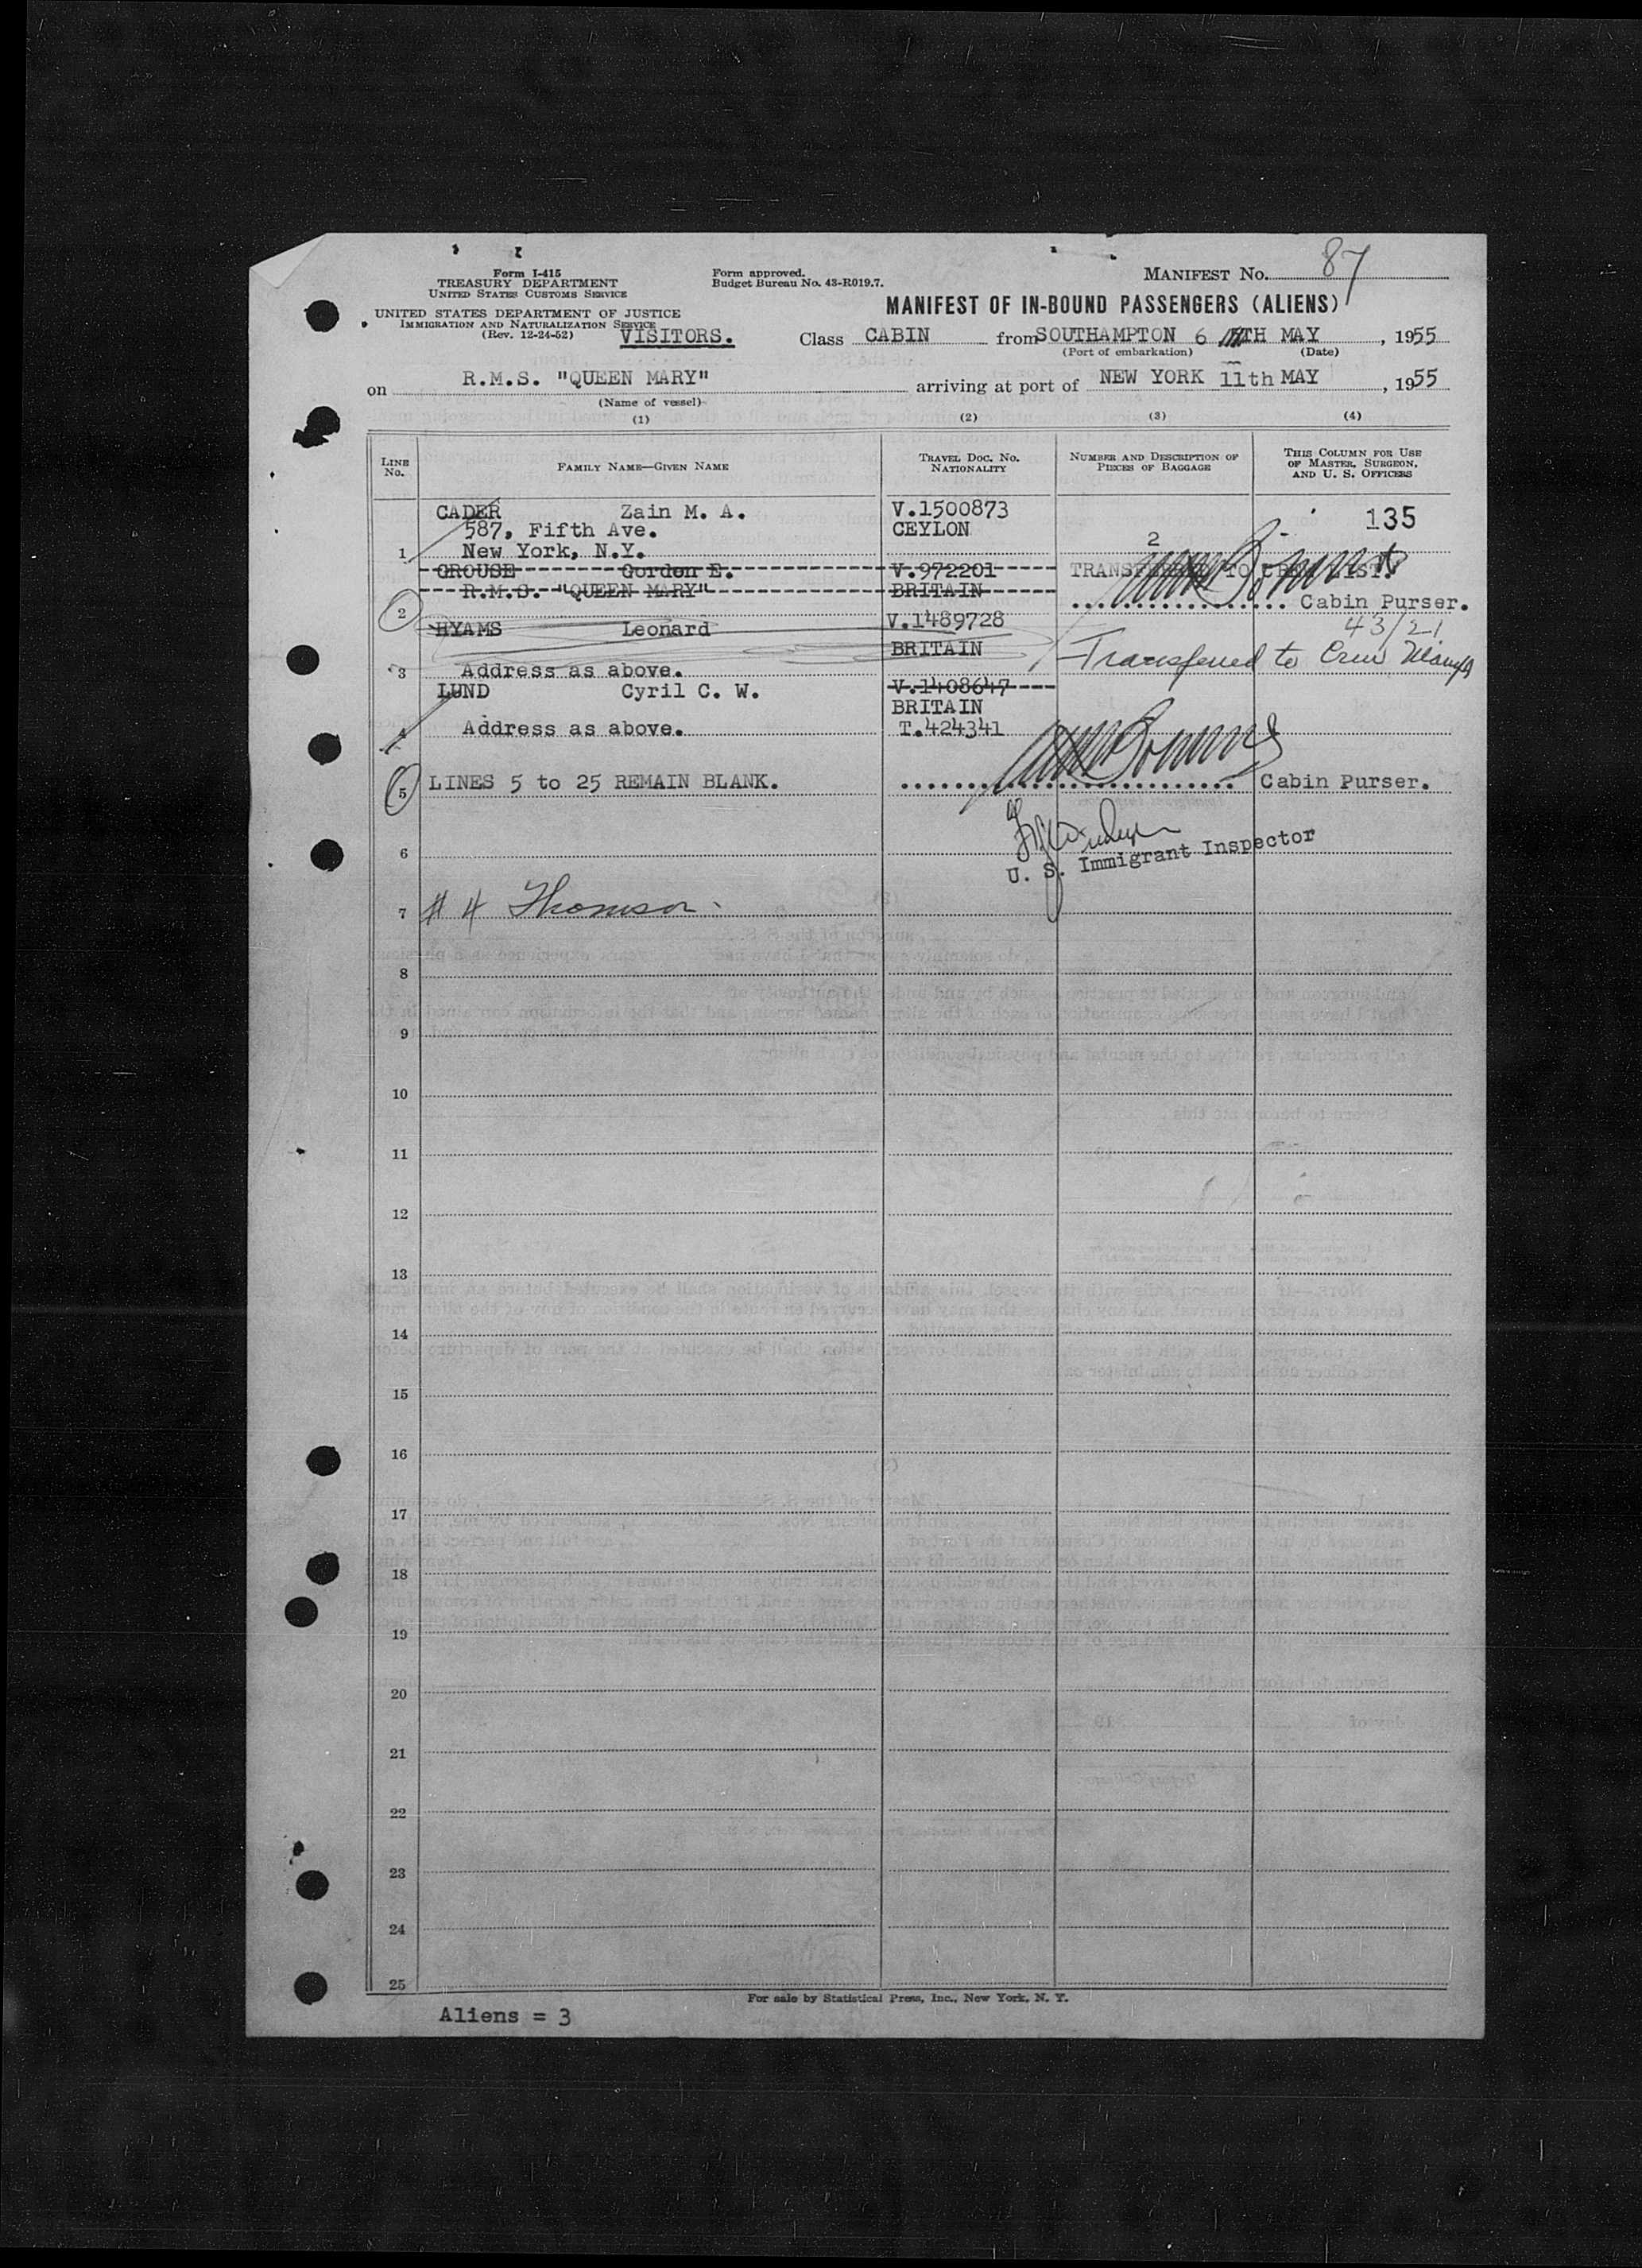 Form I-415
TREASURY DEPARTMENT
UNITED STATES CUSTOMS SERVICE
UNITED STATES DEPARTMENT OF JUSTICE
IMMIGRATION AND NATURALIZATION SERVICE
(Rev. 12-24-52) VISITORS.
Form approved.
Budget Bureau No. 43-R019.7.
MANIFEST NO. 87
MANIFEST OF IN-BOUND PASSENGERS (ALIENS)
Class CABIN from SOUTHAMPTON 6 TH MAY, 1955
(Port of embarkation) (Date)
on R.M.S. "QUEEN MARY" arriving at port of NEW YORK 11th MAY, 1955
(Name of vessel)
(1) (2) (3) (4)
LINE NO.
FAMILY NAME—GIVEN NAME
TRAVEL DOC. NO. NATIONALITY
NUMBER AND DESCRIPTION OF PIECES OF BAGGAGE
THIS COLUMN FOR USE OF MASTER, SURGEON, AND U. S. OFFICERS
CADER Zain M. A. V.1500873 135
587, Fifth Ave. CEYLON
1 New York, N.Y. 2
CROUSE Gordon E. V.972201 TRANSFERRED TO CREW LIST.
R.M.S. "QUEEN MARY" BRITAIN
2 Cabin Purser.
HYAMS Leonard V.1489728 43/21
BRITAIN Transferred to Crew
3 Address as above.
LUND Cyril C. W. V.1408647
BRITAIN
4 Address as above. T.424341
5 LINES 5 to 25 REMAIN BLANK. Cabin Purser.
6
U. S. Immigrant Inspector
7 # 4 Thomson
8
9
10
11
12
13
14
15
16
17
18
19
20
21
22
23
24
25
For sale by Statistical Press, Inc., New York, N. Y.
Aliens = 3